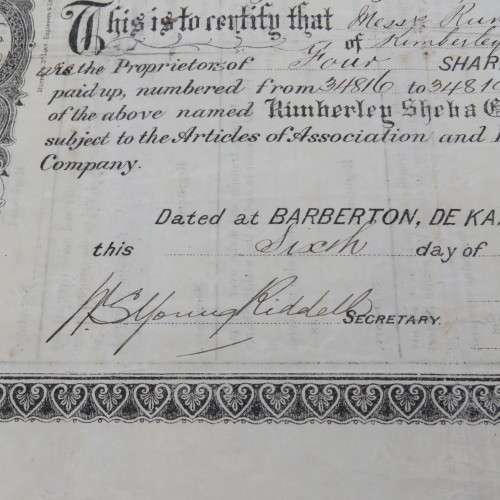 This is to certify that Messrs
of Kimberley
the Proprietor of Four SHAR
paid up, numbered from 34816 to 3481
of the above named Kimberley Sheba G
subject to the Articles of Association and
Company.
Dated at BARBERTON, DE KA
this Sixth day of
W S Young Riddell
SECRETARY.